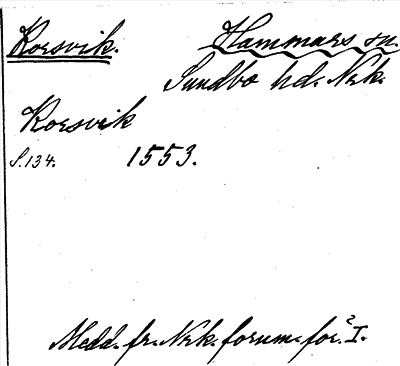 Korsvik. Hammars sn.
Sundbo hd. Nrk.
Korsvik
S. 134. 1553.
Medd. fr. Nrk. fornm. för. I.